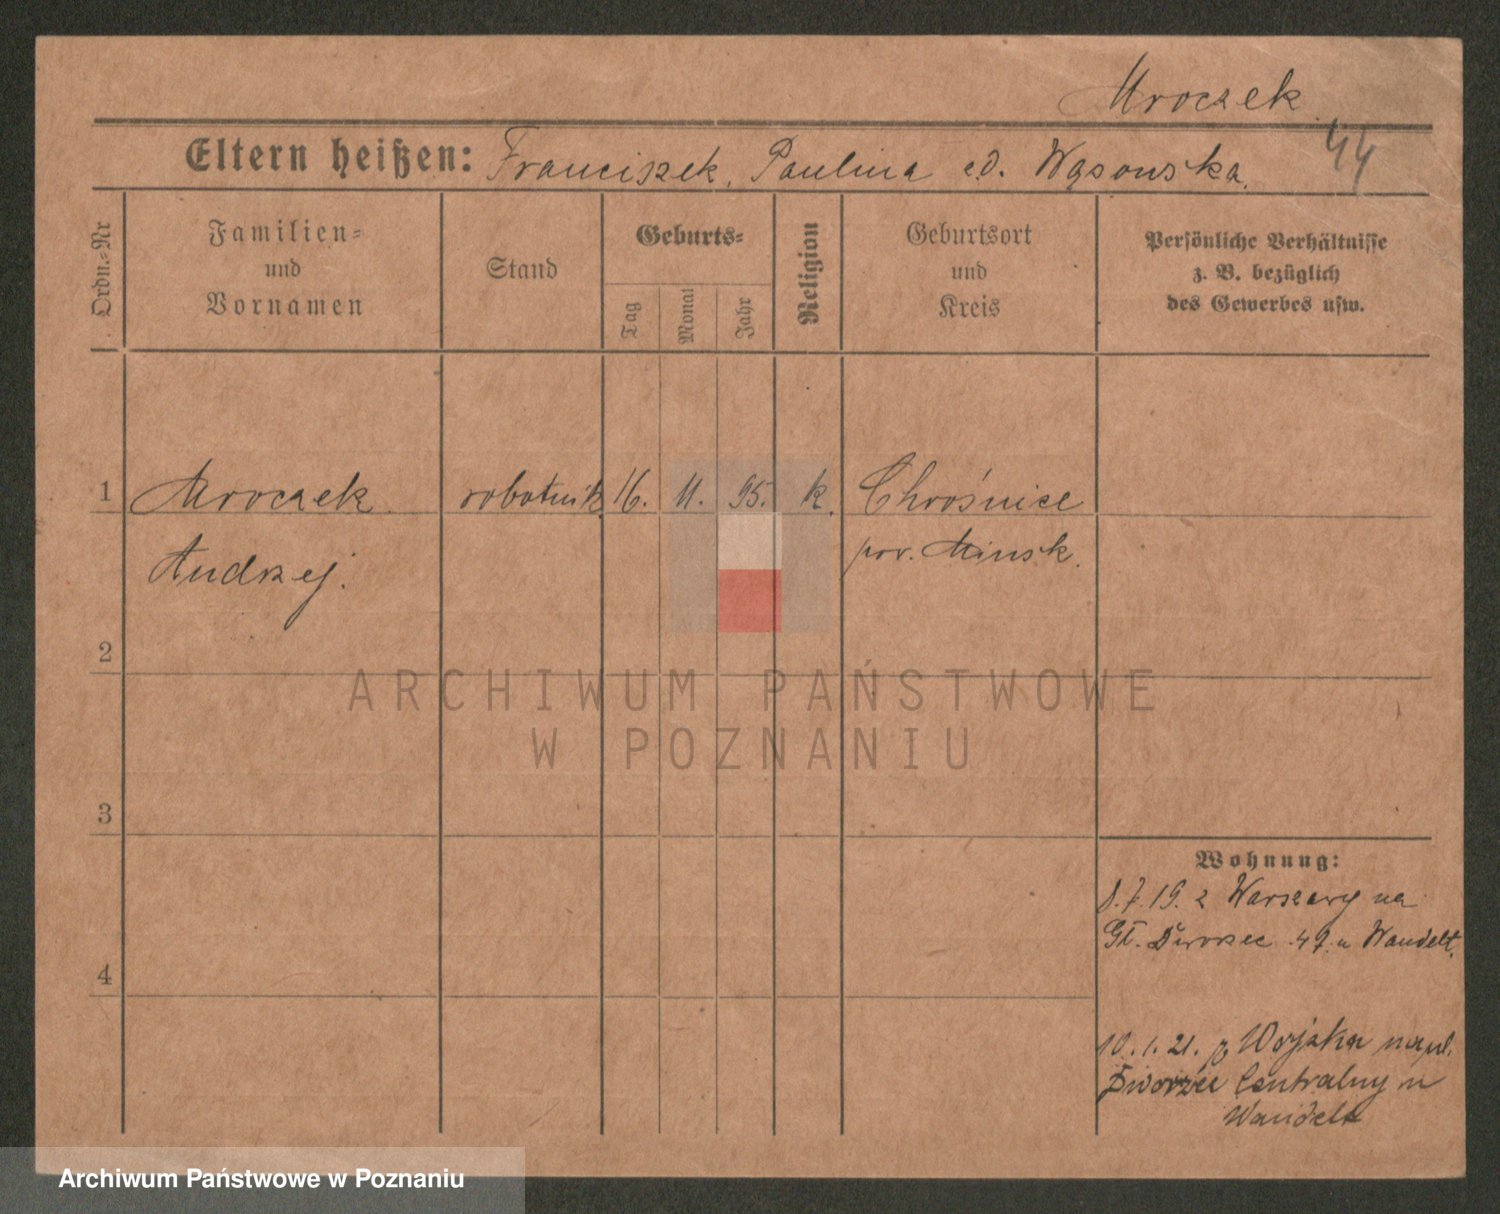 Mroczek
44
Eltern heißen: Franciszek, Paulina z d. Wąsowska.
Ordn.-Nr
Familien-
und
Vornamen
Stand
Geburts-
Tag
Monat
Jahr
Religion
Geburtsort
und
Kreis
Persönliche Verhältnisse
z. B. bezüglich
des Gewerbes usw.
1 Mroczek robotnik 16. 11. 95. k. Chrośnice
Andrzej. pow. Minsk.
2
ARCHIWUM PAŃSTWOWE
W POZNANIU
3
Wohnung:
8.7.19. z Warszawy na
Gł. Dworzec 47. u Wandelt.
4
10.1.21. z Wojska na ul.
Dworzec Centralny u
Wandelt
Archiwum Państwowe w Poznaniu